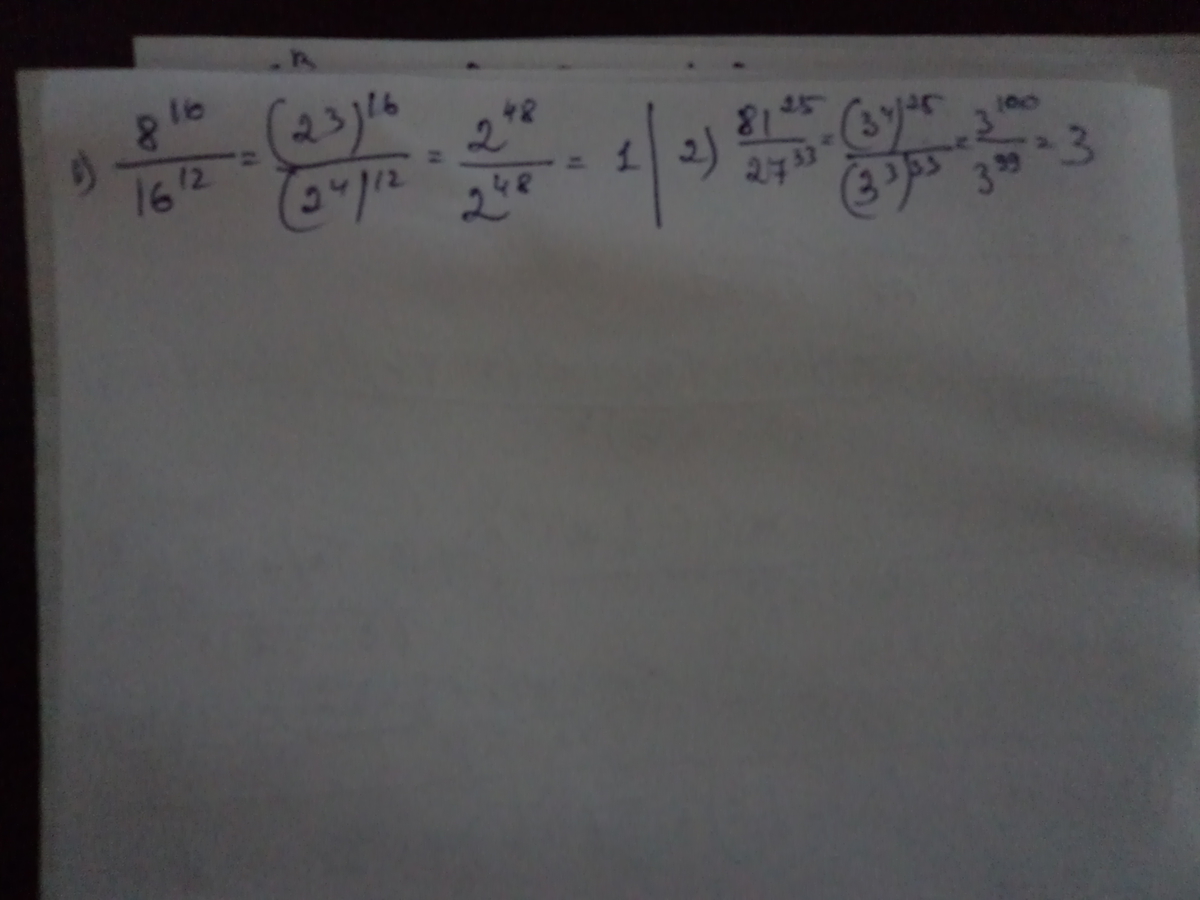 1) 8^16/16^12 = (2^3)^16/(2^4)^12 = 2^48/2^48 = 1 | 2) 81^25/27^33 = (3^4)^25/(3^3)^33 = 3^100/3^99 = 3